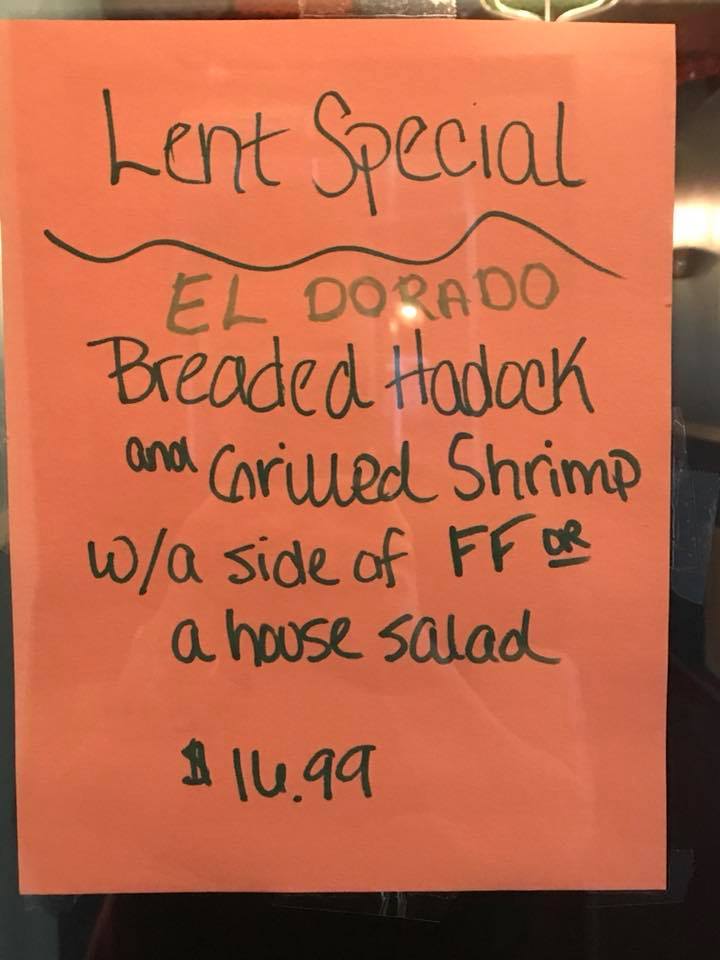 Lent Special
EL DORADO
Breaded Hadock
and Grilled Shrimp
w/a side of FF OR
a house salad
$ 16.99